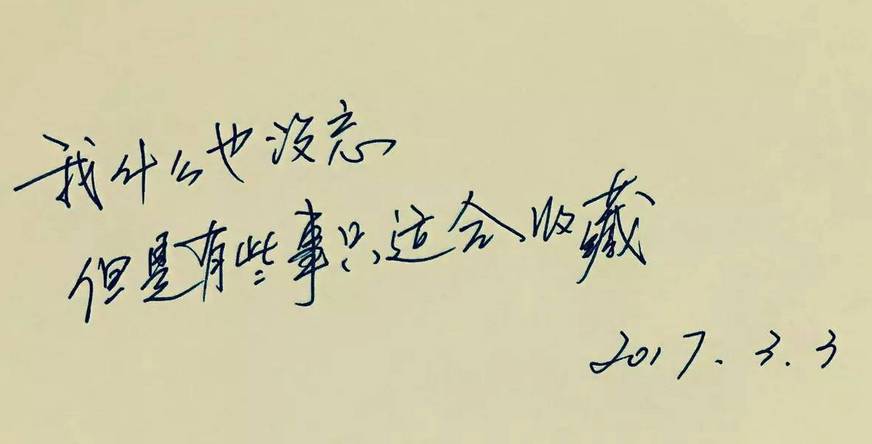 我什么也没忘
但是有些事只适合收藏
2017.3.3